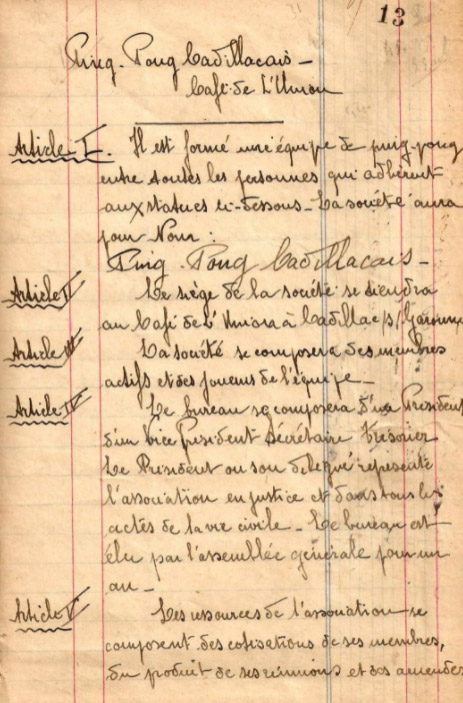 13
Ping-Pong Cadillacais -
Café de L'Union
Article I. Il est formé une équipe de ping-pong
entre toutes les personnes qui adhèrent
aux statues ci-dessous - La société aura
pour Nom :
Ping-Pong Cadillacais -
Article II Le siège de la société se tiendra
au Café de L'Union à Cadillac s/ Garonne
Article III La société se composera des membres
actifs et des joueurs de l'équipe -
Article IV Le bureau se composera d'un President
d'un Vice President Sécrétaire Trésorier
Le President ou son délégué représente
l'association en justice et dans tous les
actes de la vie civile - Le bureau est
élu par l'assemblée générale pour un
an -
Article V Les ressources de l'association se
composent des cotisations de ses membres,
du produit de ses réunions et des amendes